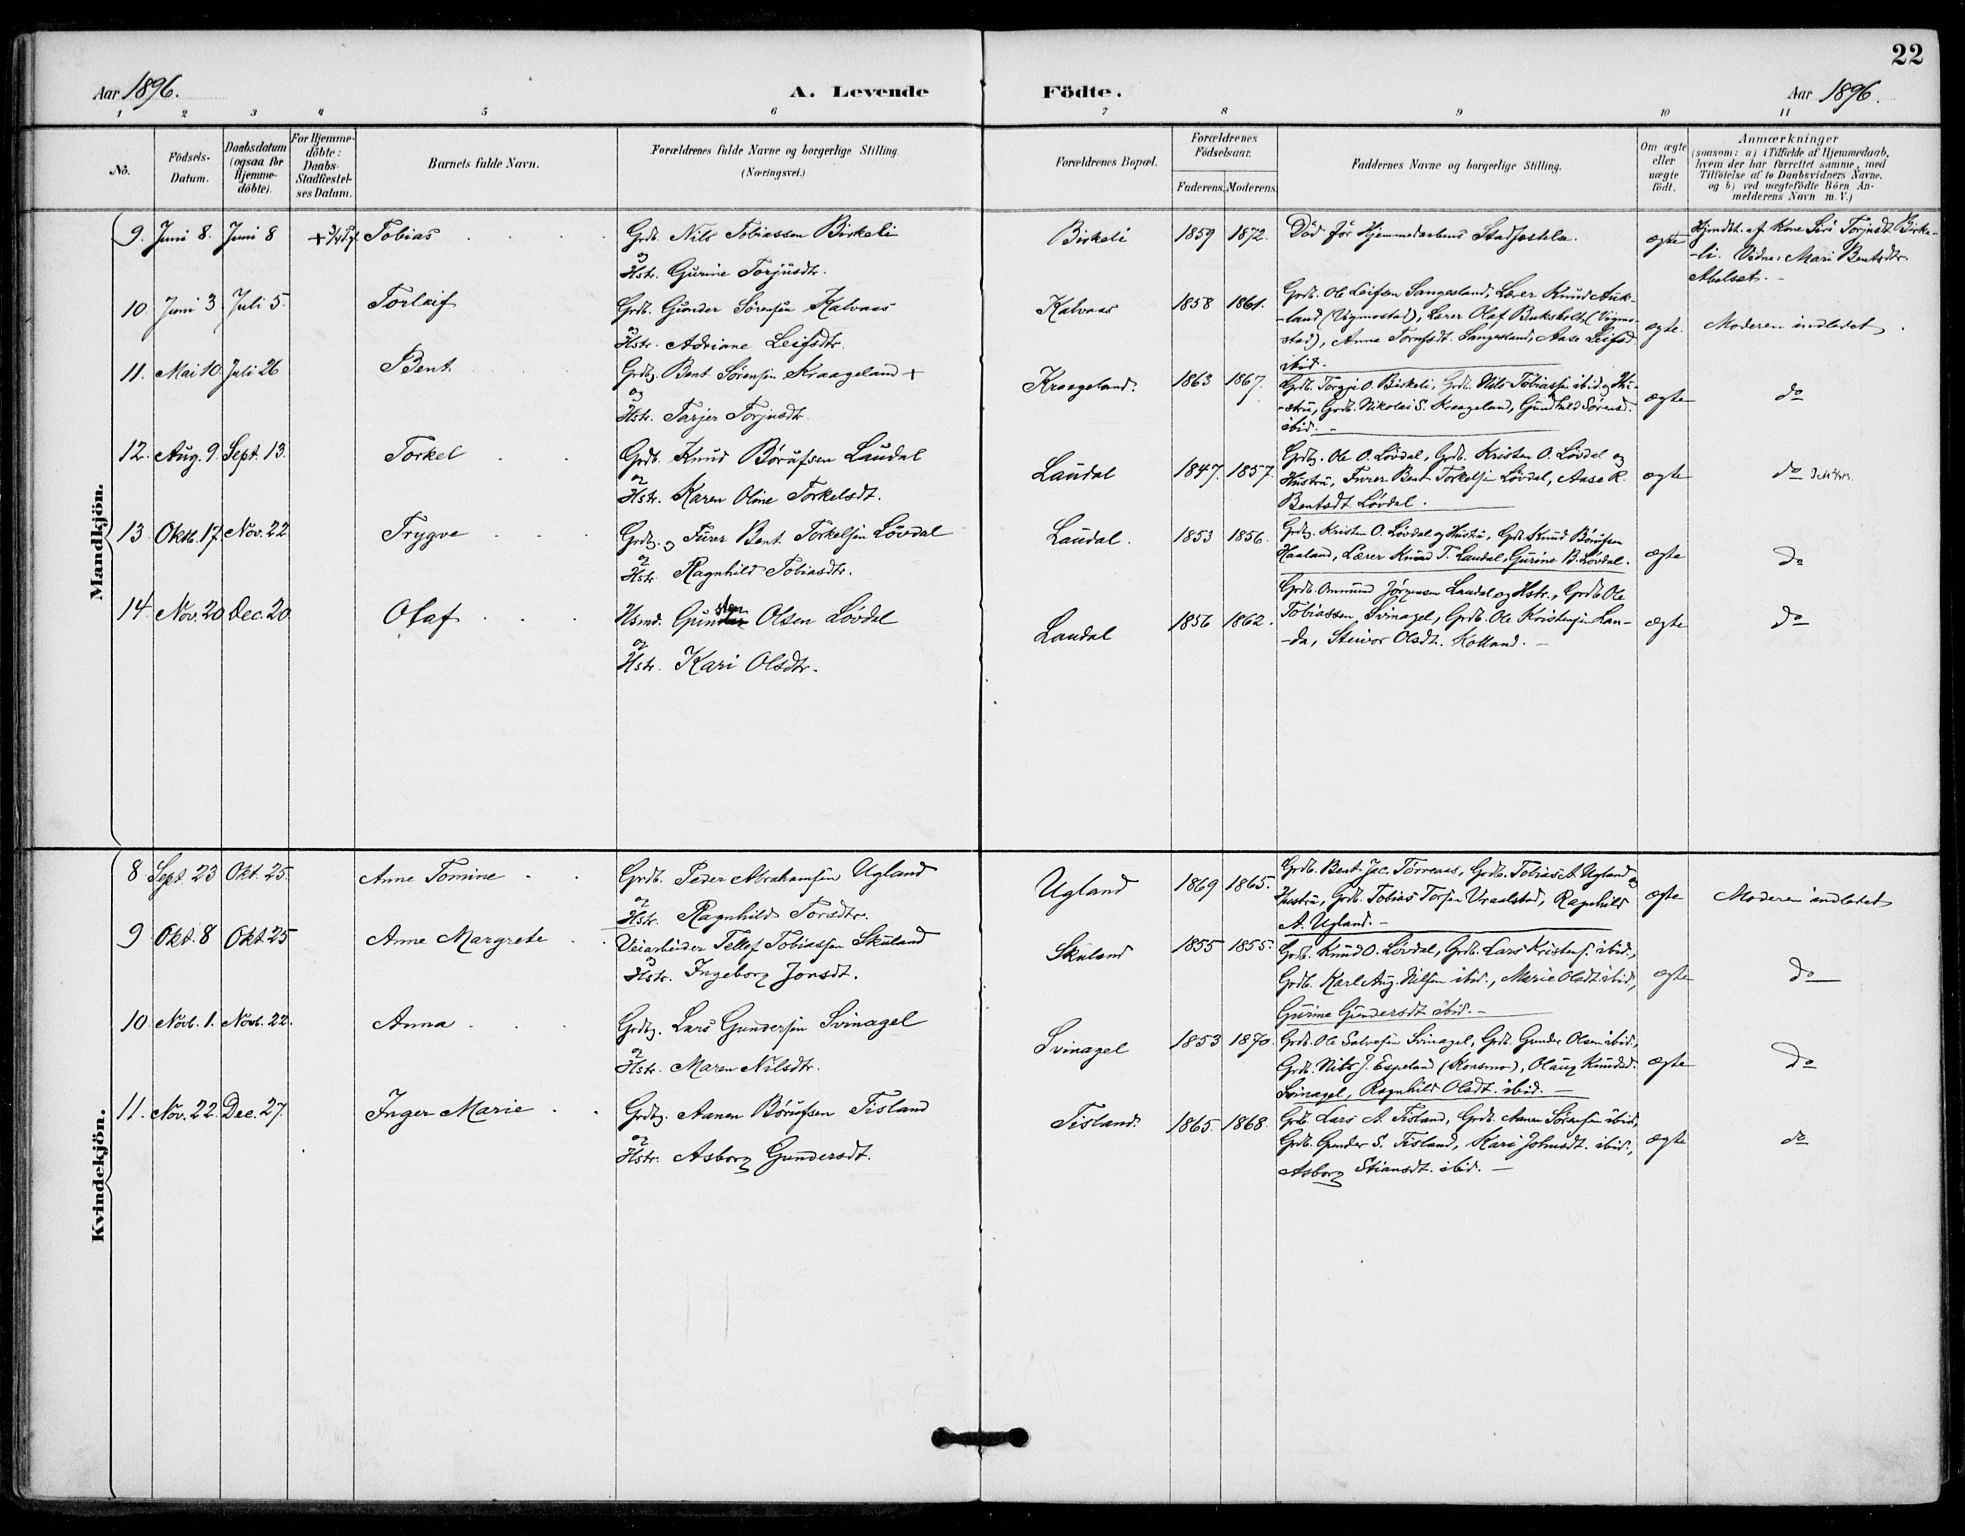 22
Aar 1896. A. Levende Födte. Aar 1896.
1 2 3 4 5 6 7 8 9 10 11
No.
Födsels-Datum.
Daabsdatum (ogsaa for Hjemme-döbte).
For Hjemme-döbte: Daabs-Stadfæstel-ses Datum.
Barnets fulde Navn.
Forældrenes fulde Navne og borgerlige Stilling.
(Næringsvei.)
Forældrenes Bopæl.
Forældrenes Födselsaar.
Faderens. Moderens.
Faddernes Navne og borgerlige Stilling.
Om ægte eller uægte födt.
Anmærkninger
(saasom: a) i Tilfælde af Hjemmedaab,
hvem der har forrettet samme, med
Tilföielse af to Daabsvidners Navne,
og b) ved uægtefödte Börn An-
melderens Navn m. V.)
Mandkjön.
9. Juni 8. Juni 8 Tobias Grdb. Nils Tobiassen Birkeli
og
Hstr. Gurine Torjusdtr.
Birkeli 1859 1872. Död för Hjemmedaabens Stadfæstelse. ægte
Hjmdbt. af Kone Siri Torjusdt. Birke-
-li. Vidne: Mari Bentsdtr.
10 Juni 3. Juli 5. Torleif Grdb. Gunder Sörensen Kalvaas
og
Hstr. Adriane Leifsdtr.
Kalvaas 1858 1861. Grdb. Ole Leifsen Sangesland, Lærer Knud Auk-
-land (Vigmostad), Lærer Olaf (Vigmo-
stad), Anna Sangesland, Aase Leifsd.
ibid.
ægte. Moderen indledet.
11. Mai 10. Juli 26 Bent Grdbg. Bent Sörensen Kraageland +
og
Hstr. Tarjer Torjusdtr.
Kraageland. 1863 1867. Grdb. Torgje O. Birkeli, Grdb. Nils Tobiassen ibid. og Hu-
-stru, Grdb. Nikolai S. Kraageland, Gundhild Sörensd.
ibid. -
ægte do
12. Aug. 9. Sept. 13. Torkel Grdb. Knud Börufsen Laudal
og
Hstr. Karen Oline Torkelsdt.
Laudal 1847. 1857. Grdbg. Ole O. Lövdal, Grdb. Kristen O. Lövdal og
Hustru, Furer Bent Torkelsen Lövdal, Aase R.
Bentsdt Lövdal.
ægte do
13. Oktb. 17. Nov. 22 Trygve Grdbg. og Furer Bent Torkelsen Lövdal
og
Hstr. Ragnhild Tobiasdtr.
Laudal. 1853 1856. Grdbg. Kristen O. Lövdal og Hustru, Grdb. Knud Börufsen
Haaland, Lærer Knud T. Laudal, Gurine B. Lövdal.
ægte do
14. Nov. 20 Dec. 20 Olaf Hsmd. Gunsten Olsen Lövdal
og
Hstr. Kari Olsdtr.
Laudal 1856 1862. Grdb. Omund Jörgensen Laudal og Hstr., Grdb. Ole
Tobiassen Svinagel, Grdb. Ole Kristensen Lau-
-da, Steivor Olsdt. Kolland. -
ægte do
Kvindekjön.
8 Sept. 23 Okt. 25. Anne Tomine Grdb. Peder Abrahamsen Ugland
og
Hstr. Ragnhild Torsdtr.
Ugland 1869 1865. Grdb. Bent Jac. Törreaas, Grdb. Tobias A. Ugland og
Hustru, Grdb. Tobias Torsen Vraalstad, Ragnhild
A. Ugland. -
ægte Moderen indledet
9 Okt. 8 Okt 25 Anne Margrete Veiarbeider Tellef Tobiassen Skuland
og
Hstr. Ingeborg Jonsdt.
Skuland 1855 1855. Grdb. Knud O. Lövdal, Grdb. Lars Kristens. ibid.,
Grdb. Karl Aug. Nilsen ibid., Marie Olsdt. ibid.,
Gurine Gundersdt ibid. -
ægte do
10 Novb. 1. Novb. 22. Anna Grdbg. Lars Gundersen Svinagel
og
Hstr. Maren Nilsdtr.
Svinagel 1853 1870. Grdb. Ole Salvesen Svinagel, Grdb. Gunder Olsen ibid.,
Grdb. Nils J. Espeland (Konsmo), Olaug Knudsd.
Svinagel, Ragnhild Olsdt. ibid. -
ægte do
11. Nov. 22. Dec. 27. Inger Marie Grdbg. Aanen Börufsen Tisland
og
Hstr. Asborg Gundersdt.
Tisland. 1865. 1868. Grdb. Lars A. Tisland, Grdb. Aanen Sörensen ibid.,
Grdb. Gunder S. Tisland, Kari Johnsdt. ibid.,
Asborg Stiansdt. ibid. -
ægte do